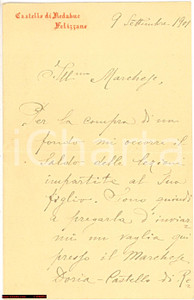 Castello di Redabue
Felizzano
9 Settembre 1901
Ill.mo Marchese,
Per la compra di un
fondo mi occorre il
saldo delle lezioni
impartite al Suo
figlio. Sono quindi
a pregarla d'inviar
mi un vaglia qui
presso il Marchese
Doria - Castello di Re